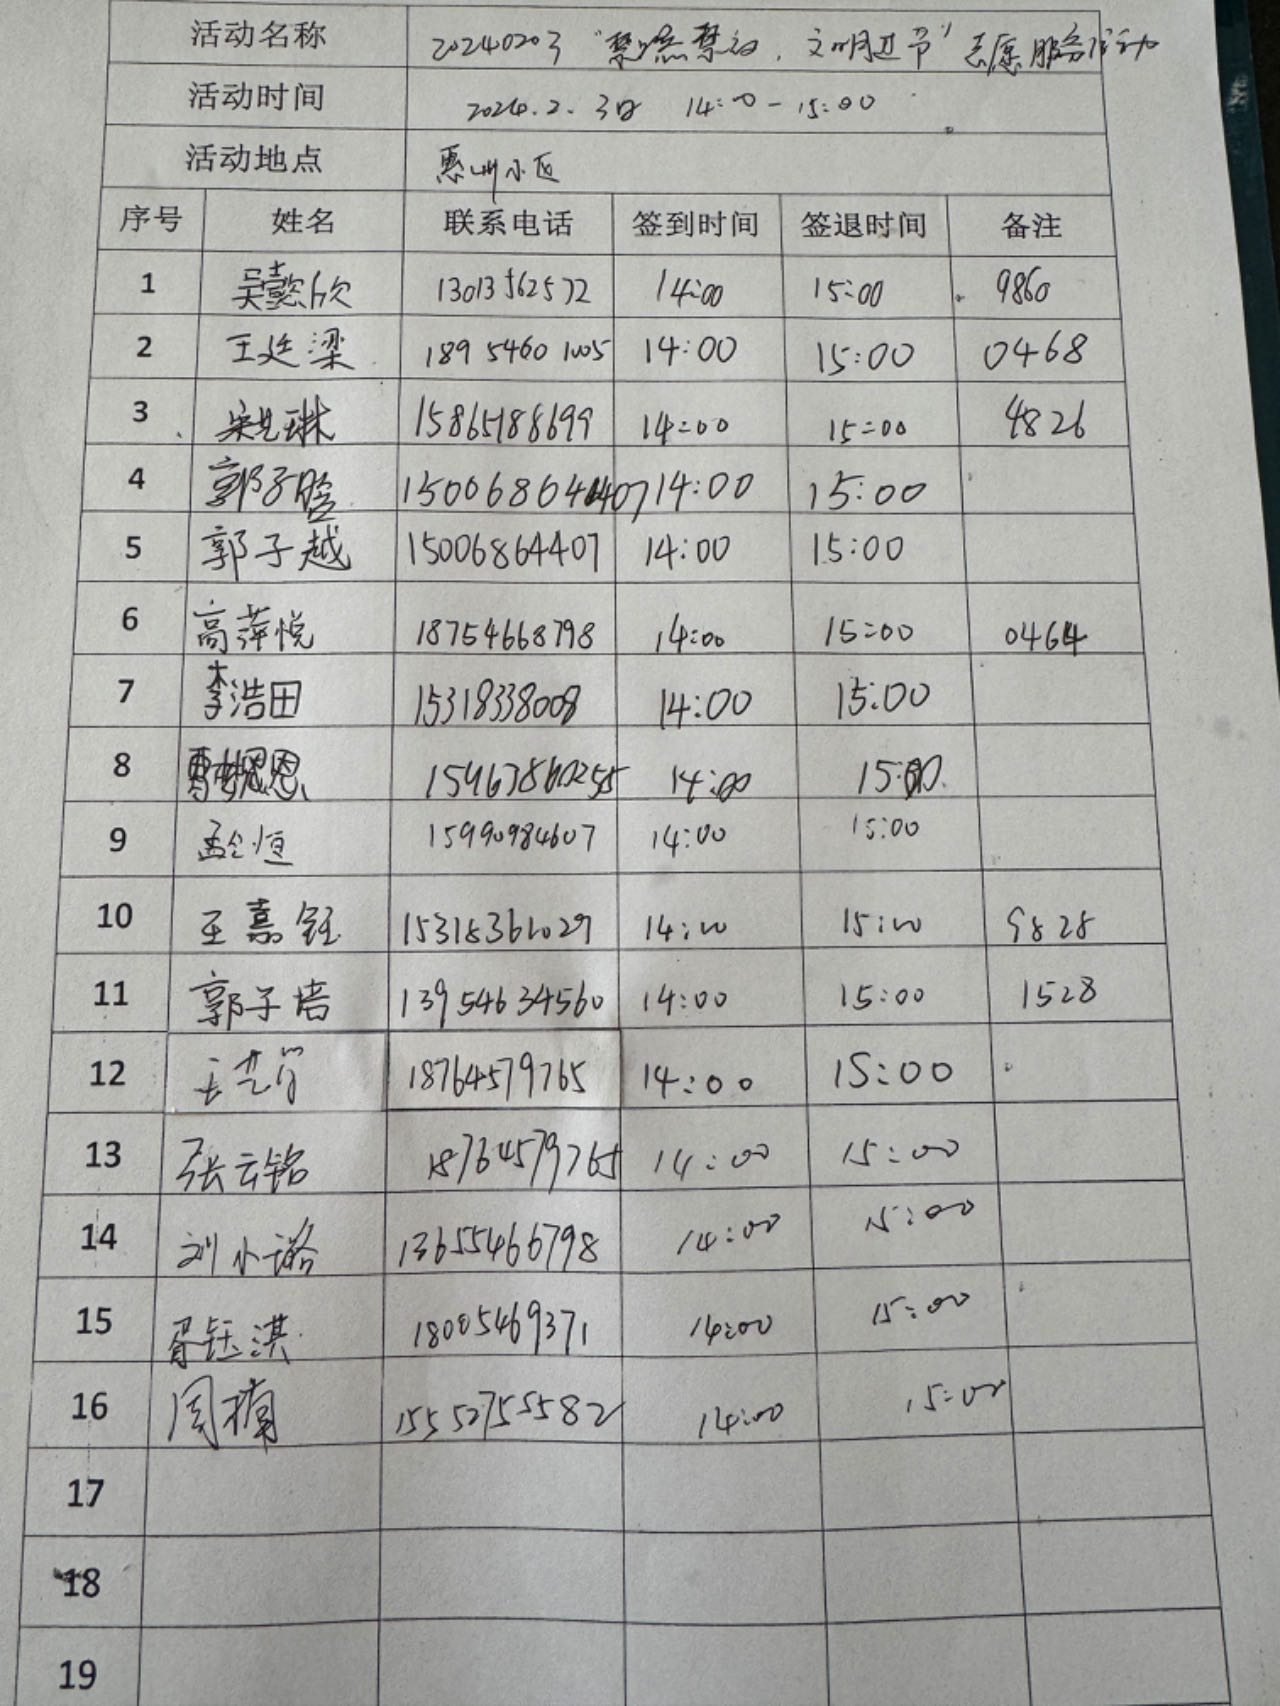 活动名称 20240203“禁燃禁放，文明过节”志愿服务活动
活动时间 2024.2.3日 14:00-15:00
活动地点 惠州小区
序号 姓名 联系电话 签到时间 签退时间 备注
1 吴懿欣 13013562572 14:00 15:00 9860
2 王廷梁 18954601005 14:00 15:00 0468
3 琳 15865188699 14:00 15:00 4826
4 郭子晗 14:00 15:00
5 郭子越 15006864407 14:00 15:00
6 高萍悦 18754668798 14:00 15:00 0464
7 李浩田 15318338008 14:00 15:00
8 恩 14:00 15:00
9 孟 恒 15990984607 14:00 15:00
10 王嘉钰 15318361029 14:00 15:00 9828
11 郭子培 13954634560 14:00 15:00 1528
12 王艺 18764579765 14:00 15:00
13 张云铭 18764579765 14:00 15:00
14 刘小诺 13655466798 14:00 15:00
15 胥钰淇 18005469371 14:00 15:00
16 周楠 15552755582 14:00 15:00
17
18
19